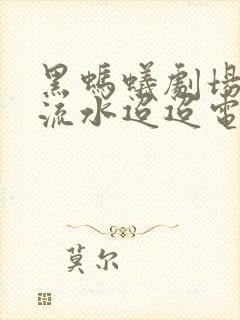 黑螞蟻劇場
流水迢迢電
莫尔